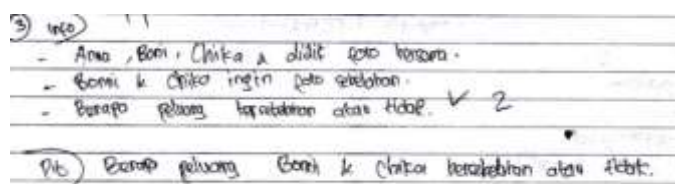 ③ info)
- Anna, Boni, Chika & didit foto bersama.
- Bonni & Chika ingin foto sebelahan.
- Berapa peluang bersebelahan atau tidak. ✓ 2
Dit) Berapa peluang Bonni & Chika bersebelahan atau tidak.